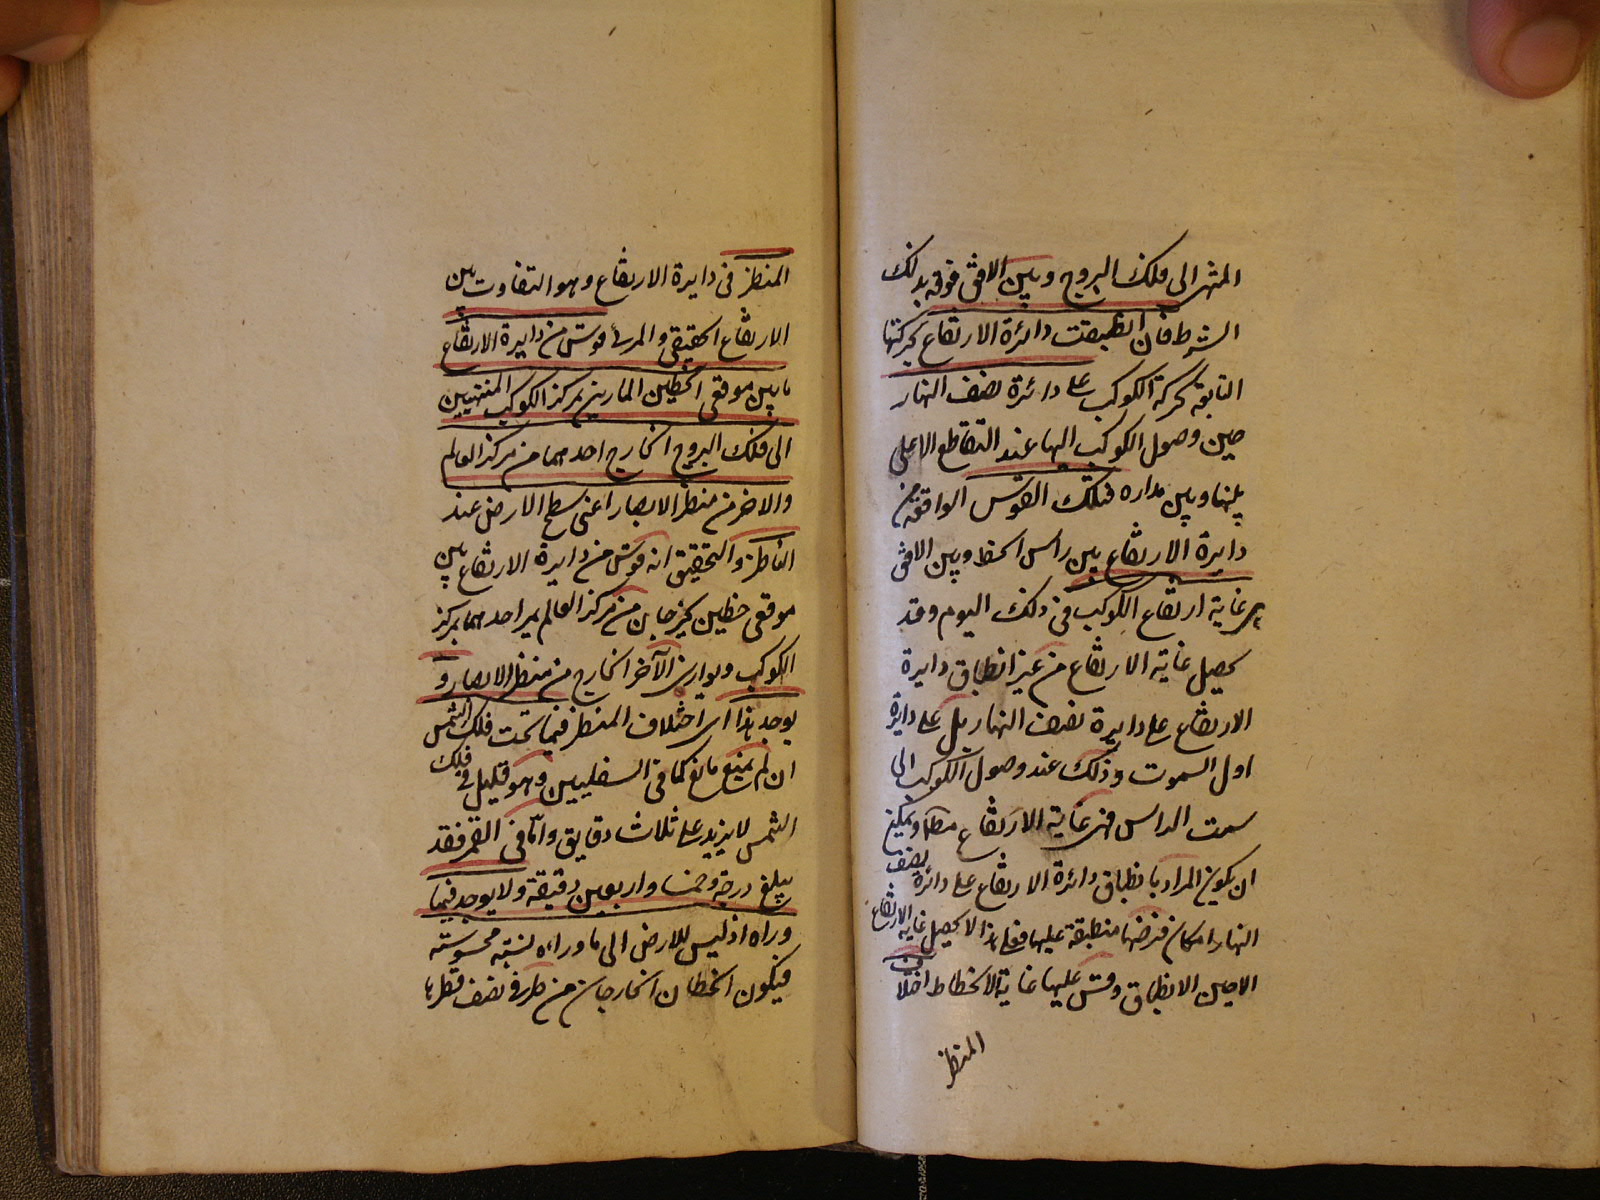 المنتهى الى فلك البروج وبين الافق فوقه بذلك
الشرط فان انطبقت دائرة الارتفاع بحركتها
التابعة لحركة الكوكب على دائرة نصف النهار
حين وصول الكوكب اليها عند التقاطع الاعلى
بينها وبين مداره فتلك القوس الواقعة من
دايرة الارتفاع بين راس الخط وبين الافق
هى غاية ارتفاع الكوكب فى ذلك اليوم وقد
يحصل غاية الارتفاع من غير انطباق دايرة
الارتفاع على دايرة نصف النهار بل على دايرة
اول السموت وذلك عند وصول الكوكب الى
سمت الراس فهى غاية الارتفاع مطلقا ويمكن
ان يكون المراد بانطباق دائرة الارتفاع على دائرة نصف
النهار امكان فرضها منطبقة عليها فعلى هذا لا يحصل غاية الارتفاع
الا حين الانطباق وقس عليها غاية الانحطاط اختلاف
المنظر
المنظر فى دايرة الارتفاع وهو التفاوت بين
الارتفاع الحقيقى والمرئ قوس من دايرة الارتفاع
ما بين موقعى الخطين المارين بمركز الكوكب المنتهيين
الى فلك البروج الخارج احدهما من مركز العالم
والاخر من منظر الابصار اعنى سطح الارض عند
الناظر والتحقيق انه قوس من دايرة الارتفاع بين
موقعى خطين يخرجان من مركز العالم يمر احدهما بمركز
الكوكب ويوازى الآخر الخارج من منظر الابصار و
يوجد هذا اى اختلاف المنظر فيما تحت فلك الشمس
ان لم يمنع مانع كما فى السفليين وهو قليل فى فلك
الشمس لا يزيد على ثلاث دقايق واما فى القمر فقد
يبلغ درجة وخمسا واربعين دقيقة ولا يوجد فيما
وراه اذ ليس للارض الى ما وراءه نسبة محسوسة
فيكون الخطان الخارجان من طرفى نصف قطرها